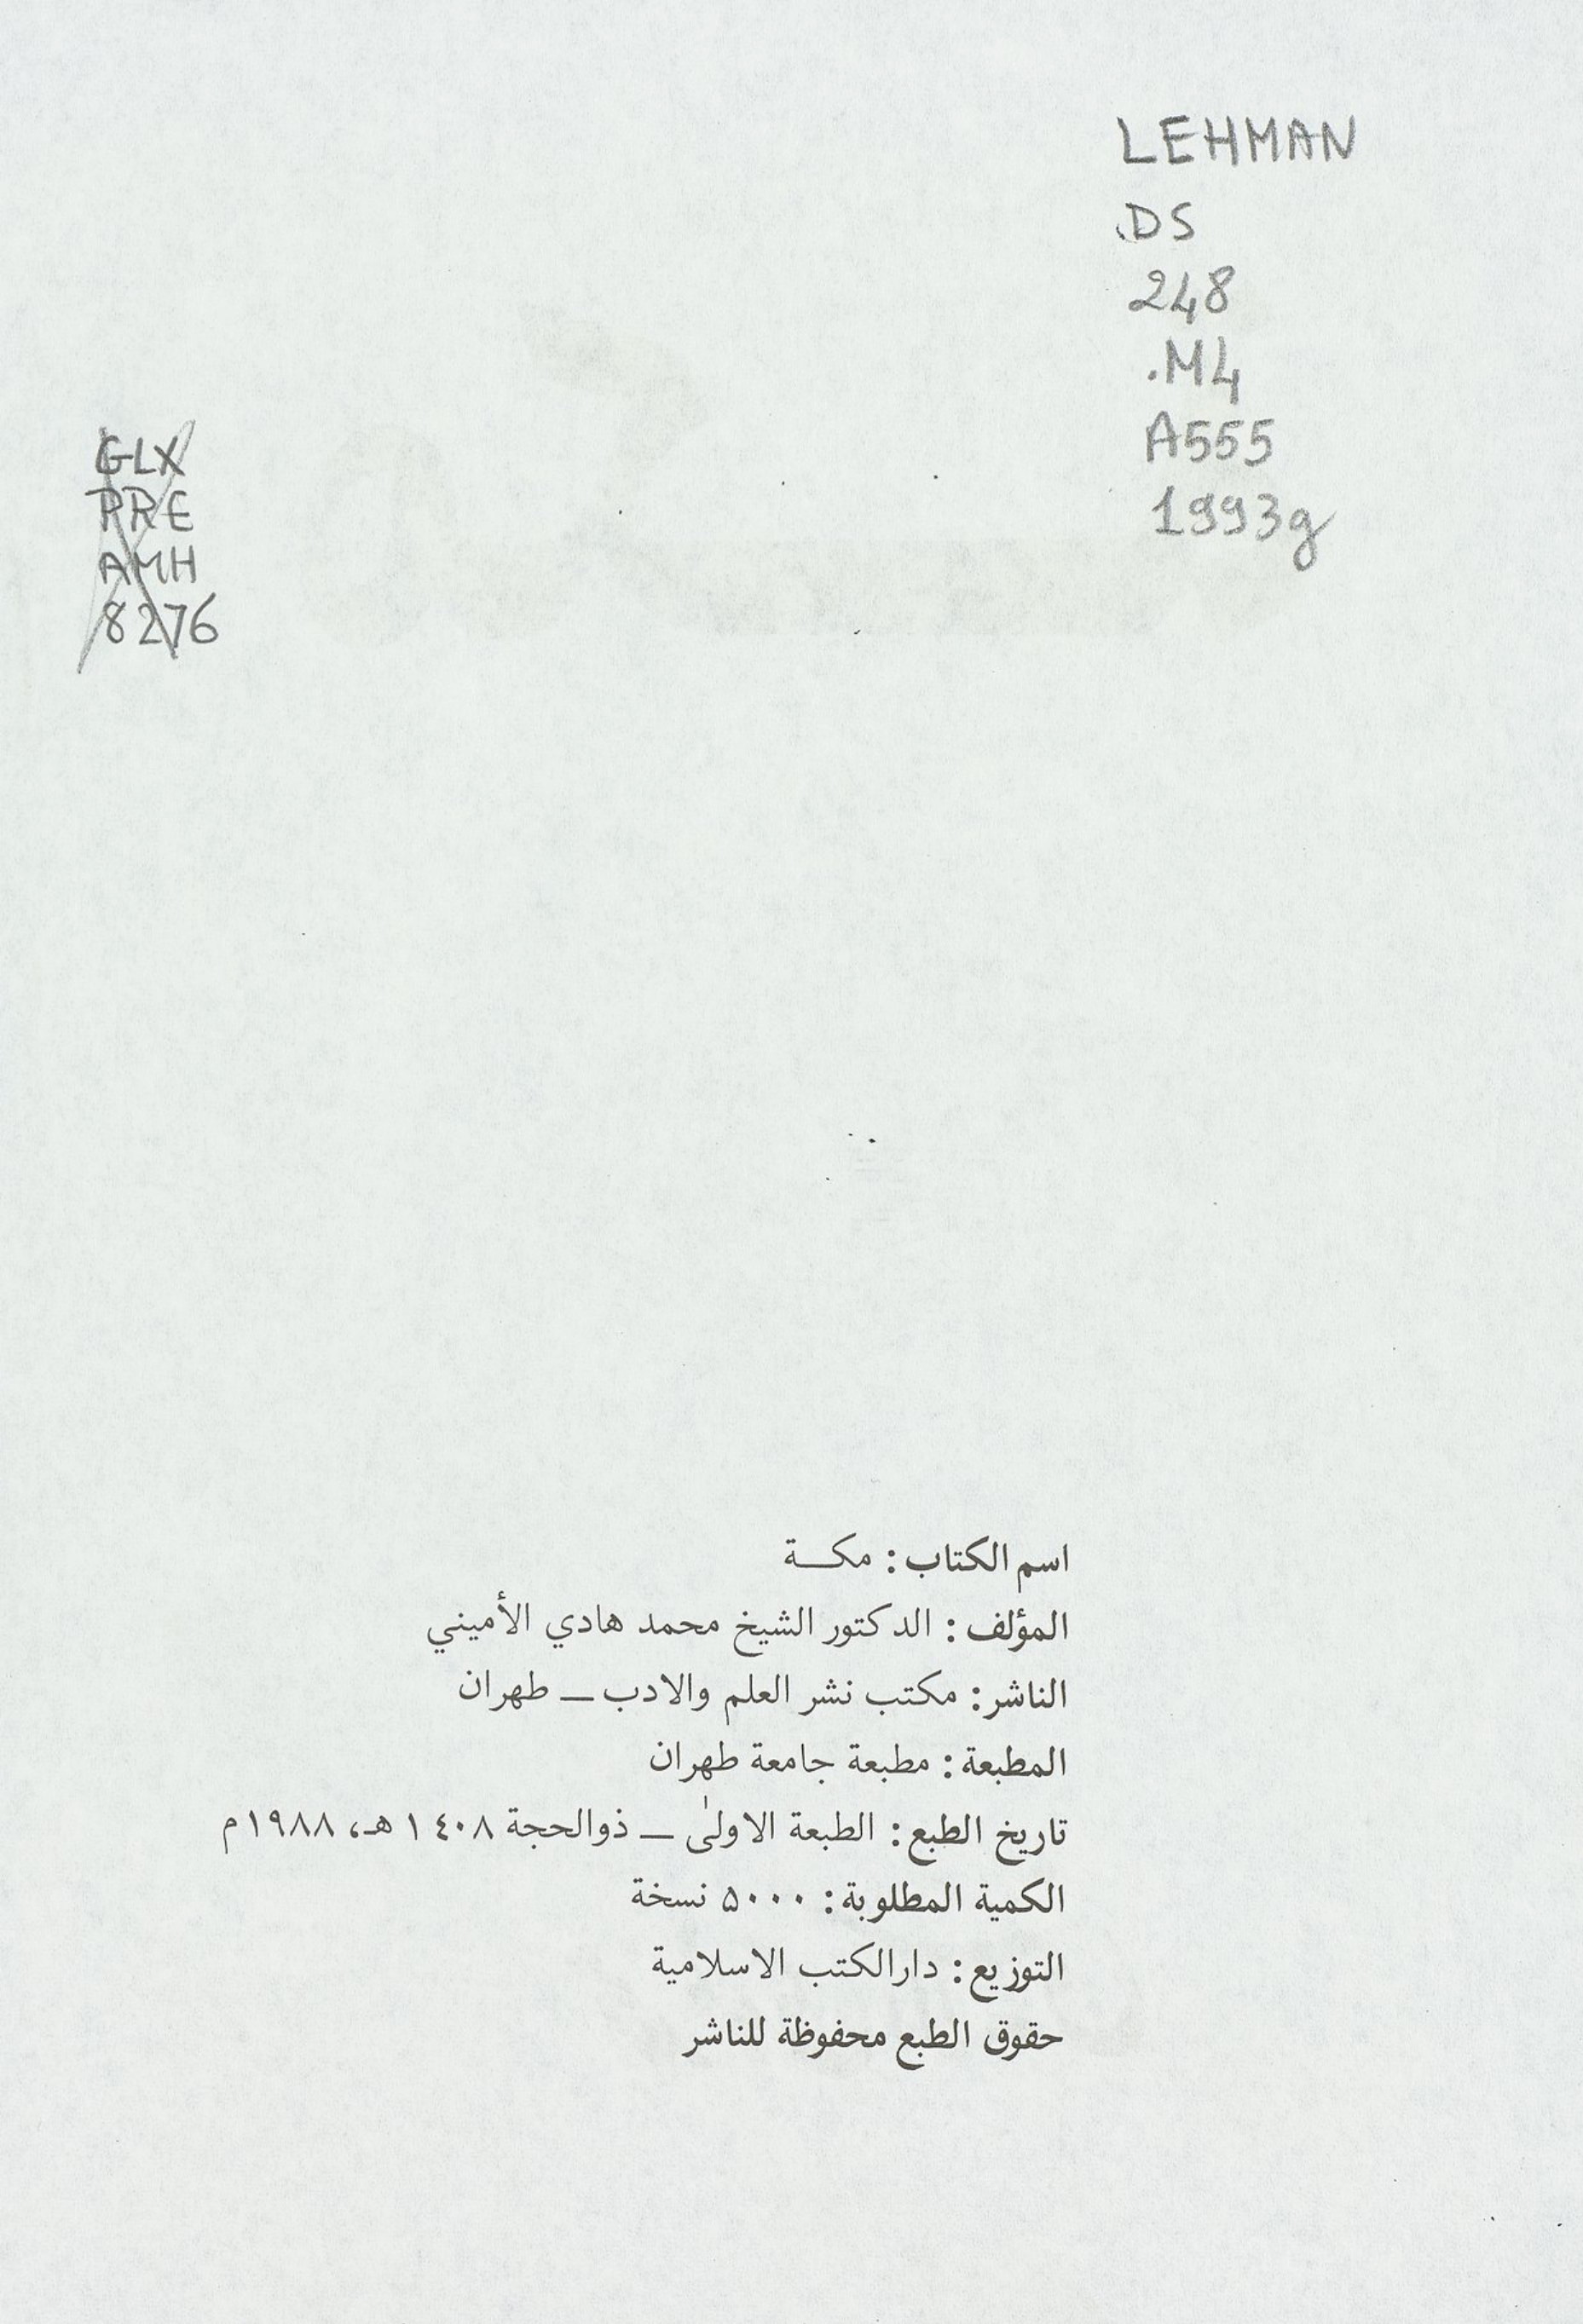 LEHMAN
DS
248
.M4
A555
1993g
GLX
PRE
AMH
8276
اسم الكتاب: مكـــة
المؤلف: الدكتور الشيخ محمد هادي الأميني
الناشر: مكتب نشر العلم والادب ــ طهران
المطبعة: مطبعة جامعة طهران
تاريخ الطبع: الطبعة الاولىٰ ــ ذوالحجة ١٤٠٨ هـ، ١٩٨٨م
الكمية المطلوبة: ۵۰۰۰ نسخة
التوزيع: دارالكتب الاسلامية
حقوق الطبع محفوظة للناشر